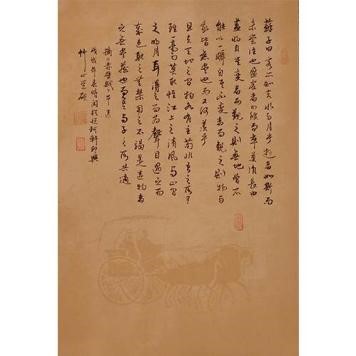 蘇子曰客亦知夫水與月乎逝者如斯而
未嘗往也盈虛者如彼而卒莫消長也
蓋將自其變者而觀之則天地曾不
能以一瞬自其不變者而觀之則物與
我皆無盡也而又何羨乎
且夫天地之間物各有主苟非吾之所有
雖一毫而莫取惟江上之清風與山間
之明月耳得之而為聲目遇之而
成色取之無禁用之不竭是造物者
之無盡藏也而吾與子之所共適
赤壁賦